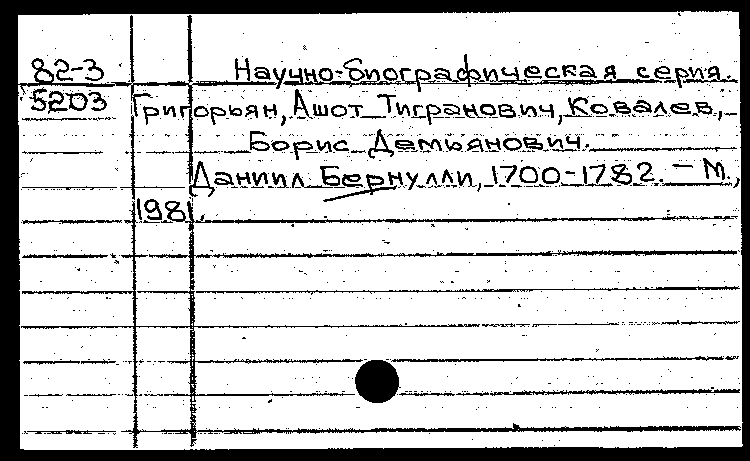 82-3 Научно-биографическая серия.
5203 Григорьян, Ашот Тигранович, Ковалев,
Борис Демьянович.
Даниил Бернулли, 1700-1782. – М.,
1981.